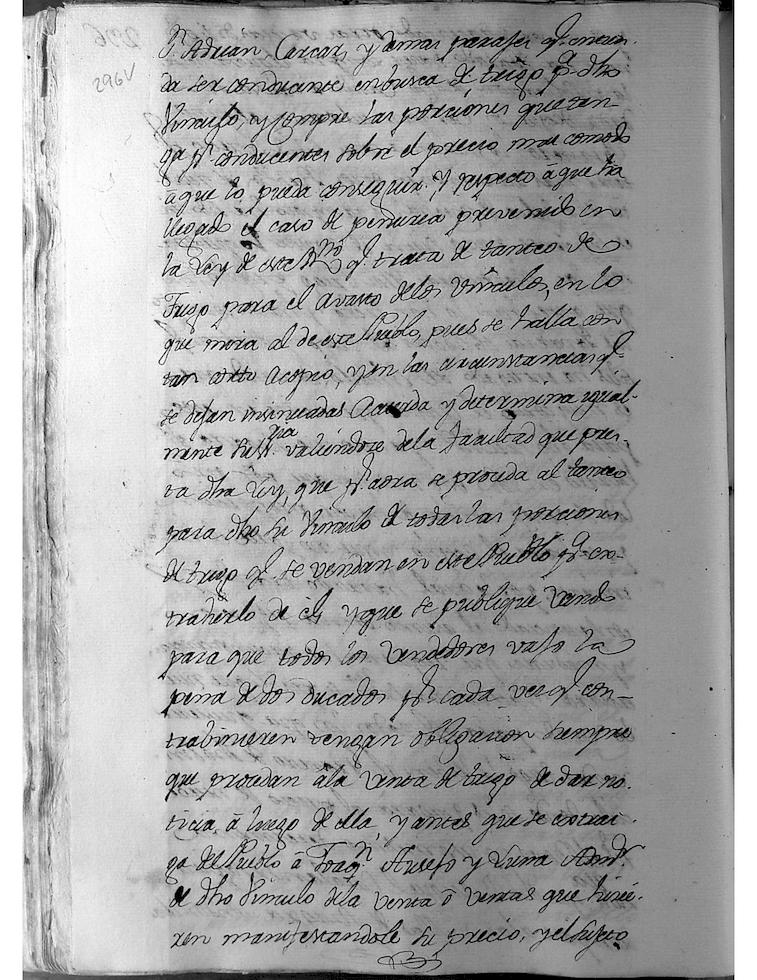 296
296V
Dn. Adrian Carcar, y demas parajes q.e entien-
da ser conducente en busca de trigo p.a dho
Vinculo, y Compre las porciones que ten-
ga p.r conducentes sobre el precio mas comodo
a que lo pueda conseguir. Y respecto á que ha
llegado el caso de penuria prevenido en
la Ley de este Rno q.e trata de tanteo de
Trigo para el Avasto delos Vinculos, en lo
que mira al de este Pueblo, pues se halla con
tan corto Acopio, y en las circunstancias q.e
se dejan insinuadas Acuerda y determina igual-
mente Su S.ria valiendose dela facultad que pres-
ta dha Ley, que p.r aora se proceda al tanteo
para dho su Vinculo de todas las porciones
de trigo q.e se vendan en este Pueblo p.a ex-
traherlo de el, y que se publique vando
para que todos los Vendedores vajo la
pena de dos ducados p.r cada vez q.e con-
trabinieren tengan obligacion siempre
que procedan á la Venta de trigo de dar no-
ticia, á luego de ella, y antes que se extrai-
ga del Pueblo á Joaq.n y Luna Adm.r
de dho Vinculo dela venta ó ventas que hicie-
ren manifestandole su precio, y el Sujeto